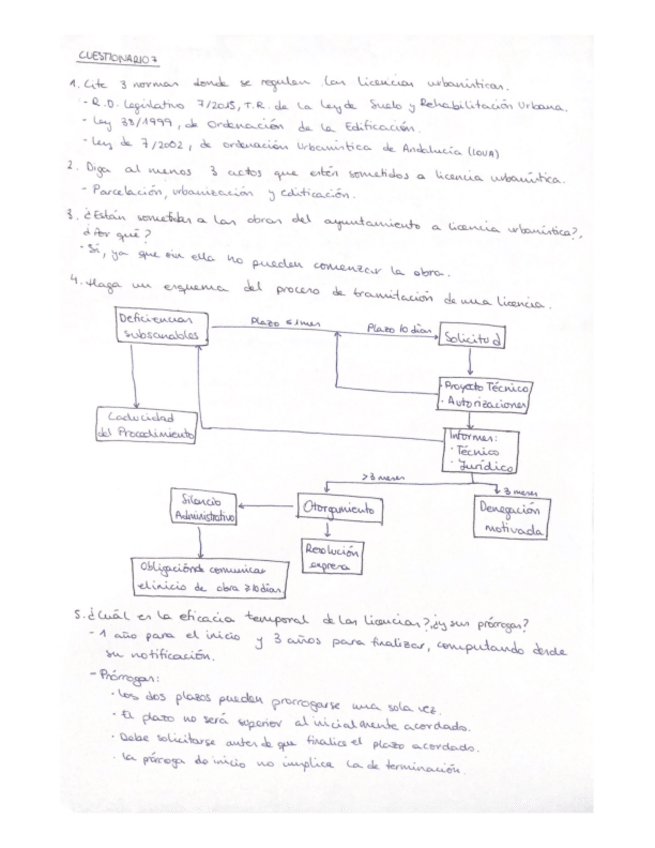 CUESTIONARIO 7
1. Cite 3 normas donde se regulen las licencias urbanísticas.
- R.D. Legislativo 7/2015, T.R. de la Ley de Suelo y Rehabilitación Urbana.
- Ley 38/1999, de Ordenación de la Edificación.
- Ley de 7/2002, de ordenación Urbanística de Andalucía (LOUA)
2. Diga al menos 3 actos que estén sometidos a licencia urbanística.
- Parcelación, urbanización y edificación.
3. ¿Están sometidas a las obras del ayuntamiento a licencia urbanística?,
¿Por qué?
- Sí, ya que sin ella no pueden comenzar la obra.
4. Haga un esquema del proceso de tramitación de una licencia.
Deficiencias
subsanables
Plazo ≤ 1 mes
Plazo 10 días
Solicitud
· Proyecto Técnico
· Autorizaciones
Caducidad
del Procedimiento
Informes:
· Técnico
· Jurídico
>3 meses
<3 meses
Silencio
Administrativo
Otorgamiento
Denegación
motivada
Resolución
expresa
Obligación de comunicar
el inicio de obra ≥10 días
5. ¿Cuál es la eficacia temporal de las licencias? ¿y sus prórrogas?
- 1 año para el inicio y 3 años para finalizar, computando desde
su notificación.
- Prórrogas:
· Los dos plazos pueden prorrogarse una sola vez.
· El plazo no será superior al inicialmente acordado.
· Debe solicitarse antes de que finalice el plazo acordado.
· La prórroga de inicio no implica la de terminación.